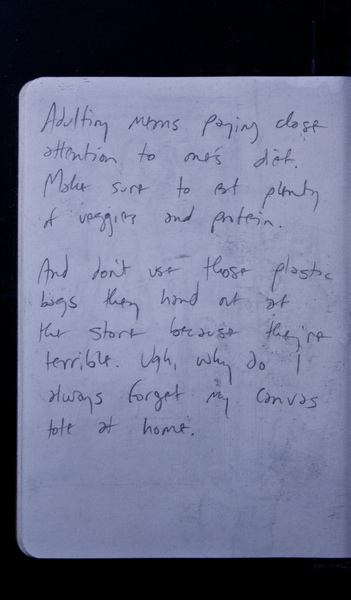 Adulting means paying close
attention to one's diet.
Make sure to eat plenty
of veggies and protein.
And don't use those plastic
bags they hand out at
the store because they're
terrible. Ugh, why do I
always forget my canvas
tote at home.